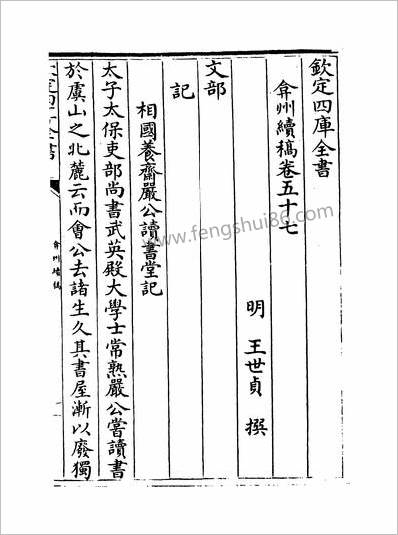 欽定四庫全書
弇州續稿卷五十七
明 王世貞 撰
文部
記
相國養齋嚴公讀書堂記
太子太保吏部尚書武英殿大學士常熟嚴公嘗讀書
於虞山之北麓云而會公去諸生久其書屋漸以廢獨
弇州續稿
www.fengshui86.com